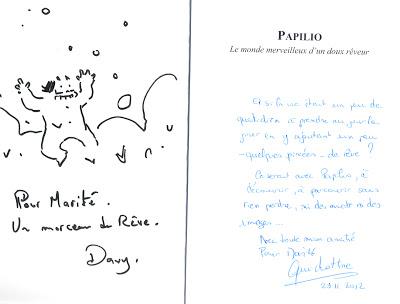 Pour Marité.
Un morceau du Rêve.
Davy.
PAPILIO
Le monde merveilleux d'un doux rêveur
Et si la vie était un peu de
quotidien à prendre au jour le
jour en y ajoutant un peu
- quelques pincées - de rêve ?
Ce serait avec Papilio, à
découvrir, à parcourir sans
rien perdre, ni des mots ni des
images...
Avec toute mon amitié
Pour Marité
23 11 2012